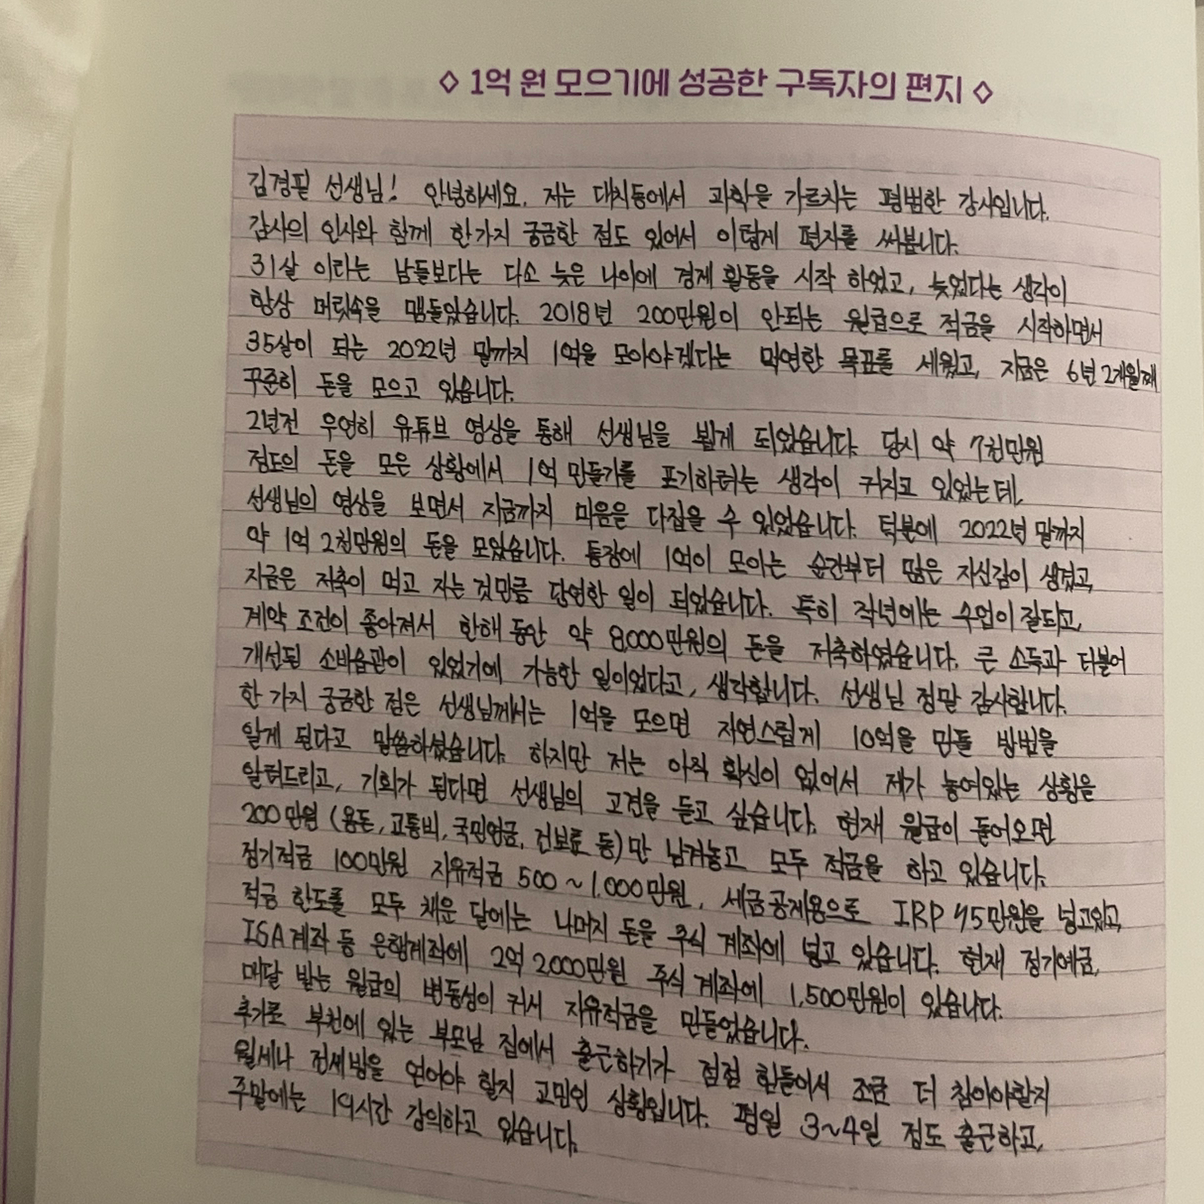 ◇ 1억 원 모으기에 성공한 구독자의 편지 ◇
김경필 선생님! 안녕하세요. 저는 대치동에서 과학을 가르치는 평범한 강사입니다.
감사의 인사와 함께 한가지 궁금한 점도 있어서 이렇게 편지를 써봅니다.
31살 이라는 남들보다는 다소 늦은 나이에 경제 활동을 시작 하였고, 늦었다는 생각이
항상 머릿속을 맴돌았습니다. 2018년 200만원이 안되는 월급으로 적금을 시작하면서
35살이 되는 2022년 말까지 1억을 모아야겠다는 막연한 목표를 세웠고, 지금은 6년 2개월째
꾸준히 돈을 모으고 있습니다.
2년전 우연히 유튜브 영상을 통해 선생님을 뵙게 되었습니다. 당시 약 7천만원
정도의 돈을 모은 상황에서 1억 만들기를 포기하려는 생각이 커지고 있었는데,
선생님의 영상을 보면서 지금까지 마음을 다잡을 수 있었습니다. 덕분에 2022년 말까지
약 1억 2천만원의 돈을 모았습니다. 통장에 1억이 모이는 순간부터 많은 자신감이 생겼고,
지금은 저축이 먹고 자는 것만큼 당연한 일이 되었습니다. 특히 작년에는 수업이 잘되고,
계약 조건이 좋아져서 한해 동안 약 8,000만원의 돈을 저축하였습니다. 큰 소득과 더불어
개선된 소비습관이 있었기에 가능한 일이었다고, 생각합니다. 선생님 정말 감사합니다.
한 가지 궁금한 점은 선생님께서는 1억을 모으면 자연스럽게 10억을 만들 방법을
알게 된다고 말씀하셨습니다. 하지만 저는 아직 확신이 없어서 제가 놓여있는 상황을
알려드리고, 기회가 된다면 선생님의 고견을 듣고 싶습니다. 현재 월급이 들어오면
200만원 (용돈, 교통비, 국민연금, 건보료 등)만 남겨놓고 모두 적금을 하고 있습니다.
정기적금 100만원 자유적금 500~1,000만원, 세금공제용으로 IRP 75만원을 넣고있고,
적금 한도를 모두 채운 달에는 나머지 돈을 주식 계좌에 넣고 있습니다. 현재 정기예금,
ISA계좌 등 은행계좌에 2억 2000만원 주식 계좌에 1,500만원이 있습니다.
매달 받는 월급의 변동성이 커서 자유적금을 만들었습니다.
추가로 부천에 있는 부모님 집에서 출근하기가 점점 힘들어서 조금 더 참아야할지
월세나 전세방을 얻어야 할지 고민인 상황입니다. 평일 3~4일 정도 출근하고,
주말에는 19시간 강의하고 있습니다.